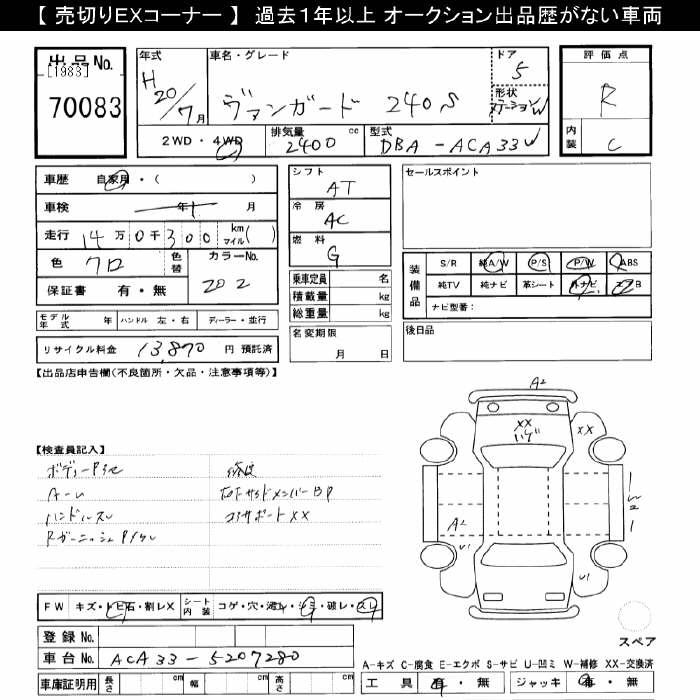 【 売切りEXコーナー 】 過去1年以上 オークション出品歴がない車両
出品No.
[1983]
70083
年式
H20/7月
車名・グレード
ヴァンガード 240S
ドア
5
形状
ステーションW
評価点
R
内装
C
2WD・4WD
排気量
2400 cc
型式
DBA-ACA33W
車歴 自家用・( )
車検 年 月
走行 14万0千300 km マイル( )
色 クロ
色替
カラーNo.
202
保証書 有・無
モデル年式 年 ハンドル 左・右 ディーラー・並行
リサイクル料金 13,870 円 預託済
シフト
AT
冷房
AC
燃料
G
乗車定員 名
積載量 kg
総重量 kg
名変期限
月 日
セールスポイント
装備品
S/R 純A/W P/S P/W ABS
純TV 純ナビ 革シート 外ナビ エアB
ナビ型番:
後日品
【出品店申告欄(不良箇所・欠品・注意事項等)】
【検査員記入】
ハンドルスレ
コアサポートXX
A2
XX
ハゲ
XX
A2
W2
U1
U1
FW キズ・トビ石・割レX
シート内装 コゲ・穴・濁レ・シミ・破レ・スレ
登録No.
車台No. ACA33-5207280
車庫証明用 長さ cm 幅 cm 高さ cm
スペア
A-キズ C-腐食 E-エクボ S-サビ U-凹ミ W-補修 XX-交換済
工具 有・無 ジャッキ 有・無